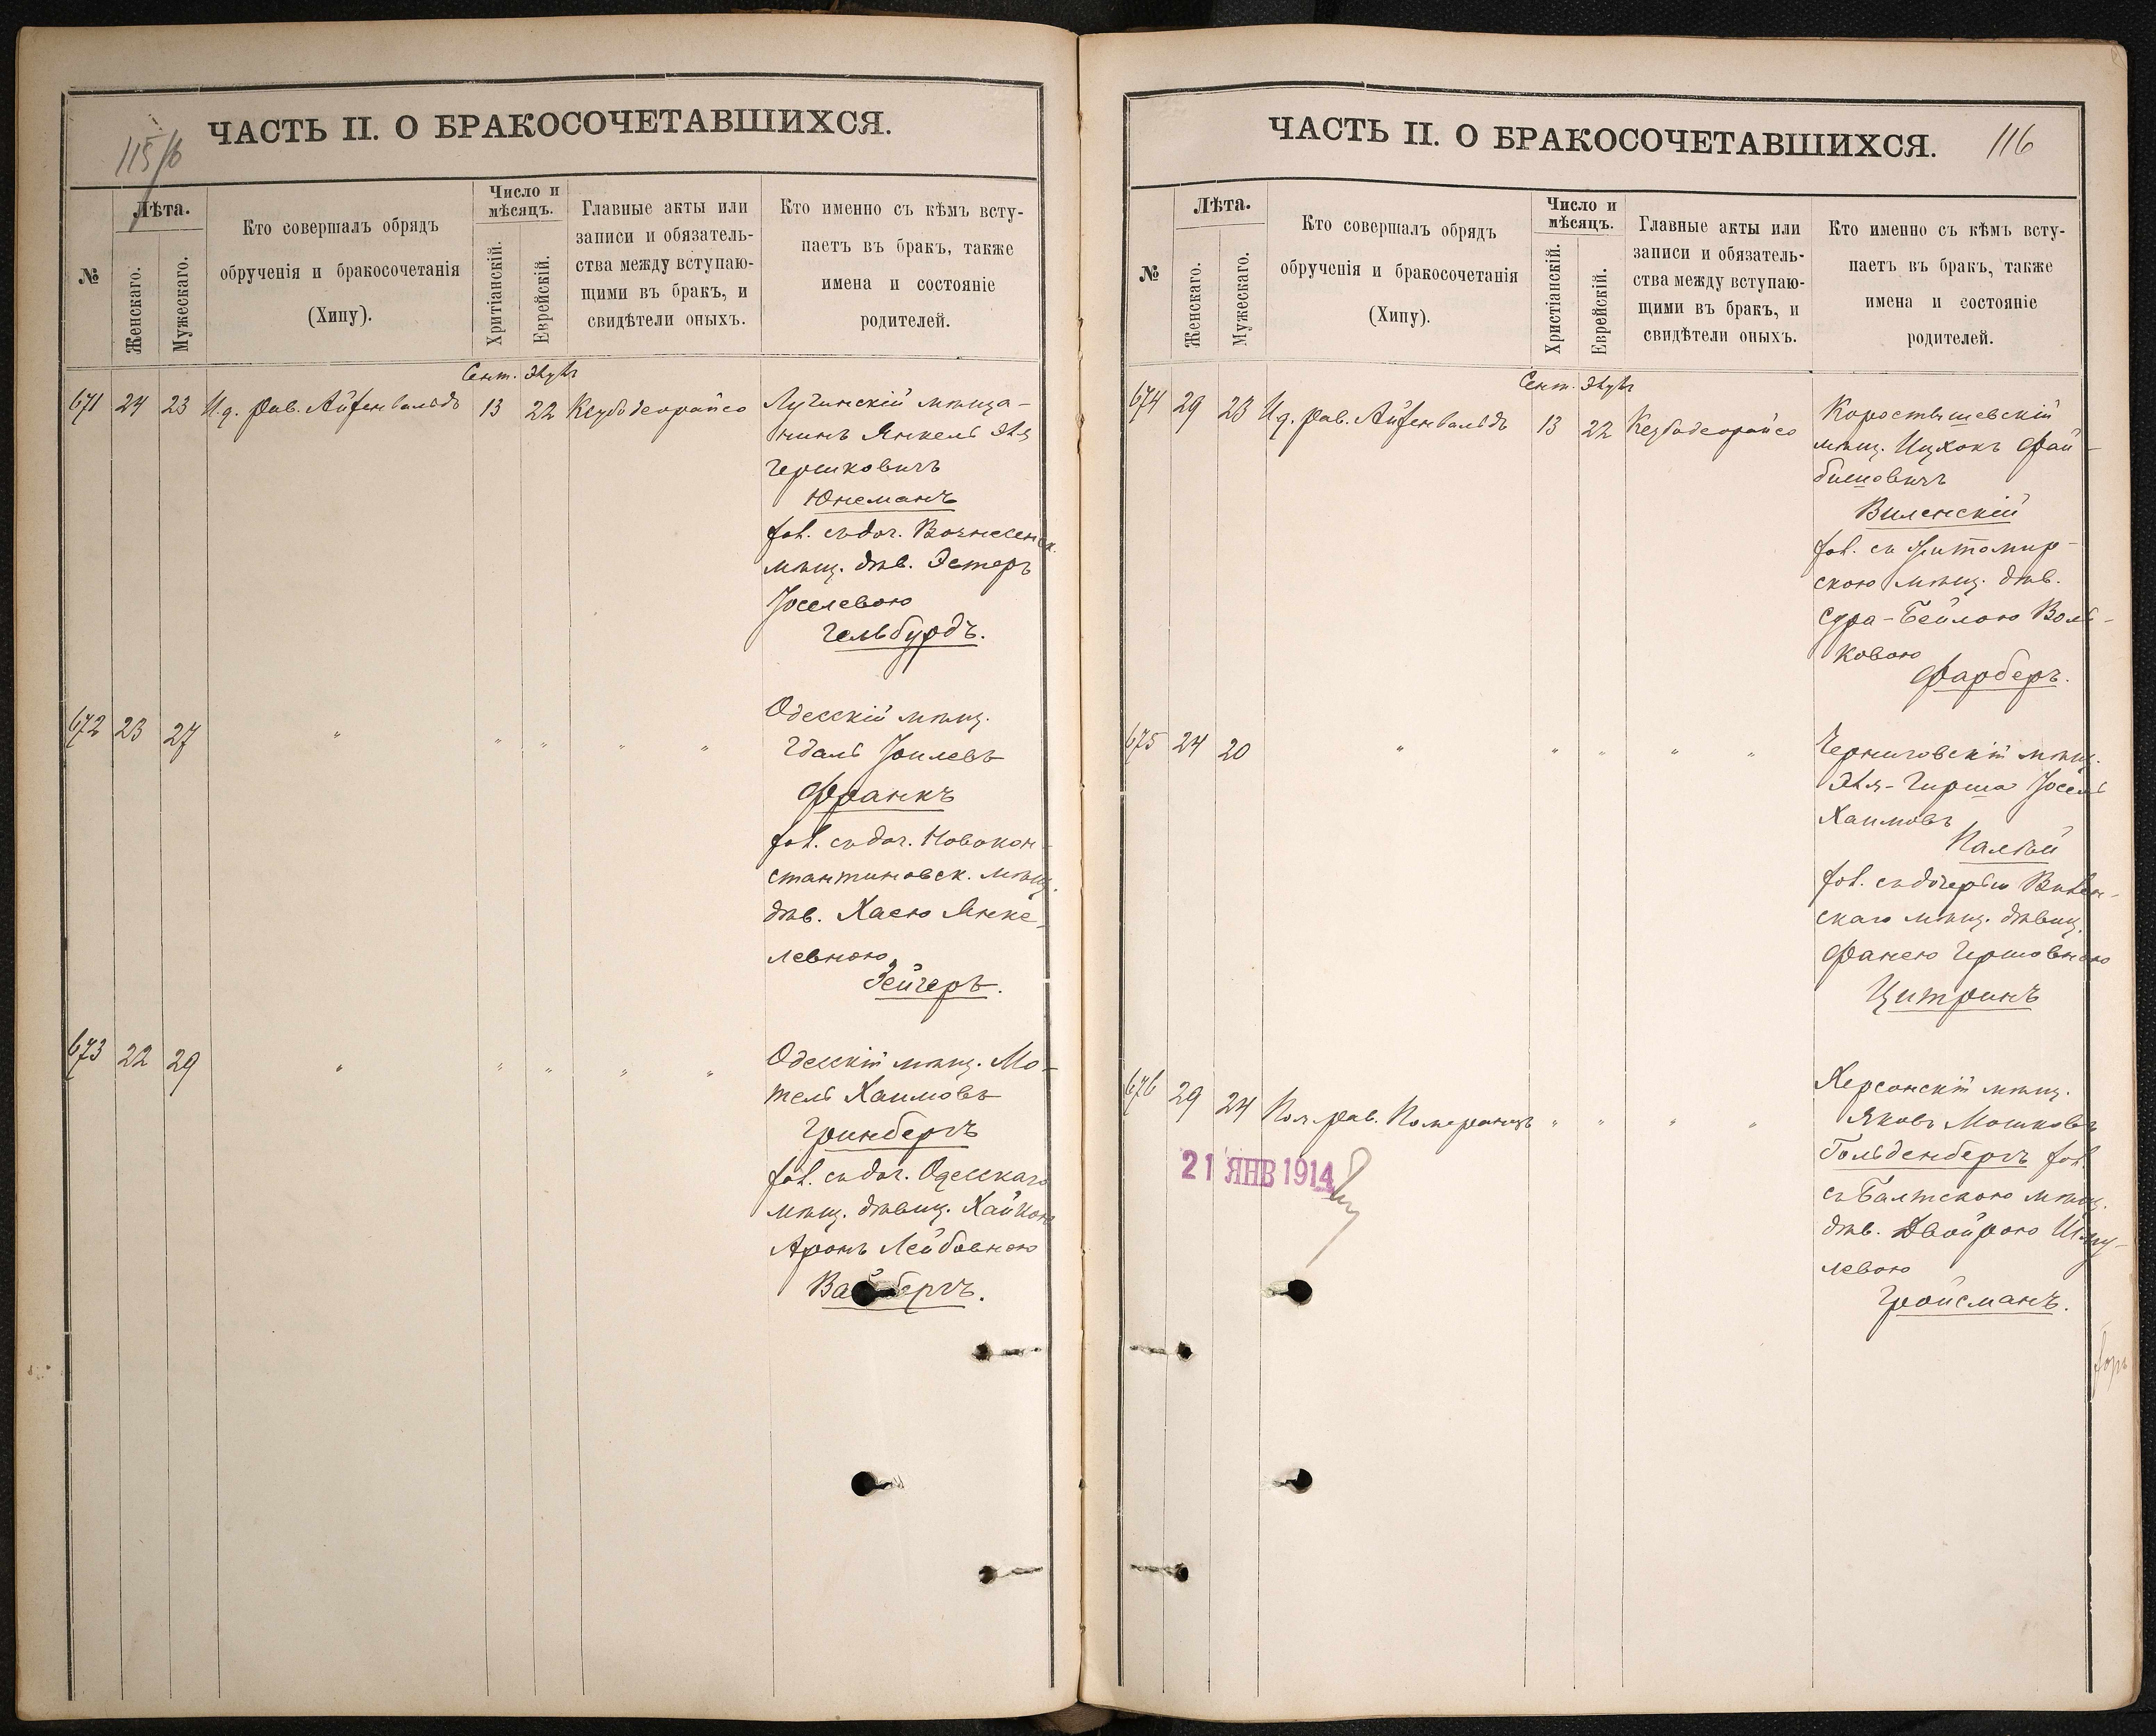 ЧАСТЬ II. О БРАКОСОЧЕТАВШИХСЯ.
115/б
№
Лѣта.
Женскаго.
Мужескаго.
Кто совершалъ обрядъ
обрученія и бракосочетанія
(Хипу).
Число и
мѣсяцъ.
Хритіанскій.
Еврейскій.
Главные акты или
записи и обязатель-
ства между вступаю-
щими въ бракъ, и
свидѣтели оныхъ.
Кто именно съ кѣмъ всту-
паетъ въ бракъ, также
имена и состояніе
родителей.
Сент. Элулъ
671 24 23 И.д. рав. Айзенвальдъ 13 22 Кезубодеорайсо Лугинскій мѣща-
нинъ Янкель Эля
Гершковичъ
Юнеманъ
хол. съ доч. Вознесенск.
мѣщ. дѣв. Эстеръ
Іоселевою
Гельбурдъ.
672 23 27 " " " " " Одесскій мѣщ.
Гдаль Іоилевъ
Франкъ
хол. съ доч. Новокон-
стантиновск. мѣщ.
дѣв. Хаею Янке-
левною
Зейгеръ.
673 22 29 " " " " " Одесскій мѣщ. Мо-
тель Хаимовъ
Гринбергъ
хол. съ доч. Одесскаго
мѣщ. дѣвиц.
Аронъ Лейбовною
ЧАСТЬ II. О БРАКОСОЧЕТАВШИХСЯ.
116
№
Лѣта.
Женскаго.
Мужескаго.
Кто совершалъ обрядъ
обрученія и бракосочетанія
(Хипу).
Число и
мѣсяцъ.
Христіанскій.
Еврейскій.
Главные акты или
записи и обязатель-
ства между вступаю-
щими въ бракъ, и
свидѣтели оныхъ.
Кто именно съ кѣмъ всту-
паетъ въ бракъ, также
имена и состояніе
родителей.
Сент. Элулъ
674 29 23 И.д. рав. Айзенвальдъ 13 22 Кезубодеорайсо Коростышевскій
мѣщ. Ицхокъ Фай-
бишовичъ
Виленскій
хол. съ Житомир-
скою мѣщ. дѣв.
Сура-Бейлою Воль-
ковою
Фарберъ.
675 24 20 " " " " " Черниговскій мѣщ.
Эля-Гирша Іосель
Хаимовъ
Палѣй
хол. съ дочерью Вилен-
скаго мѣщ. дѣвиц.
Фанею Гершовною
Цитринъ
676 29 24 Пом. рав. Померанцъ " " " " Херсонскій мѣщ.
Яковъ Мошковъ
Гольденбергъ хол.
съ Балтскою мѣщ.
дѣв. Двойрою Шму-
левою
Гройсманъ.
21 ЯНВ 1914